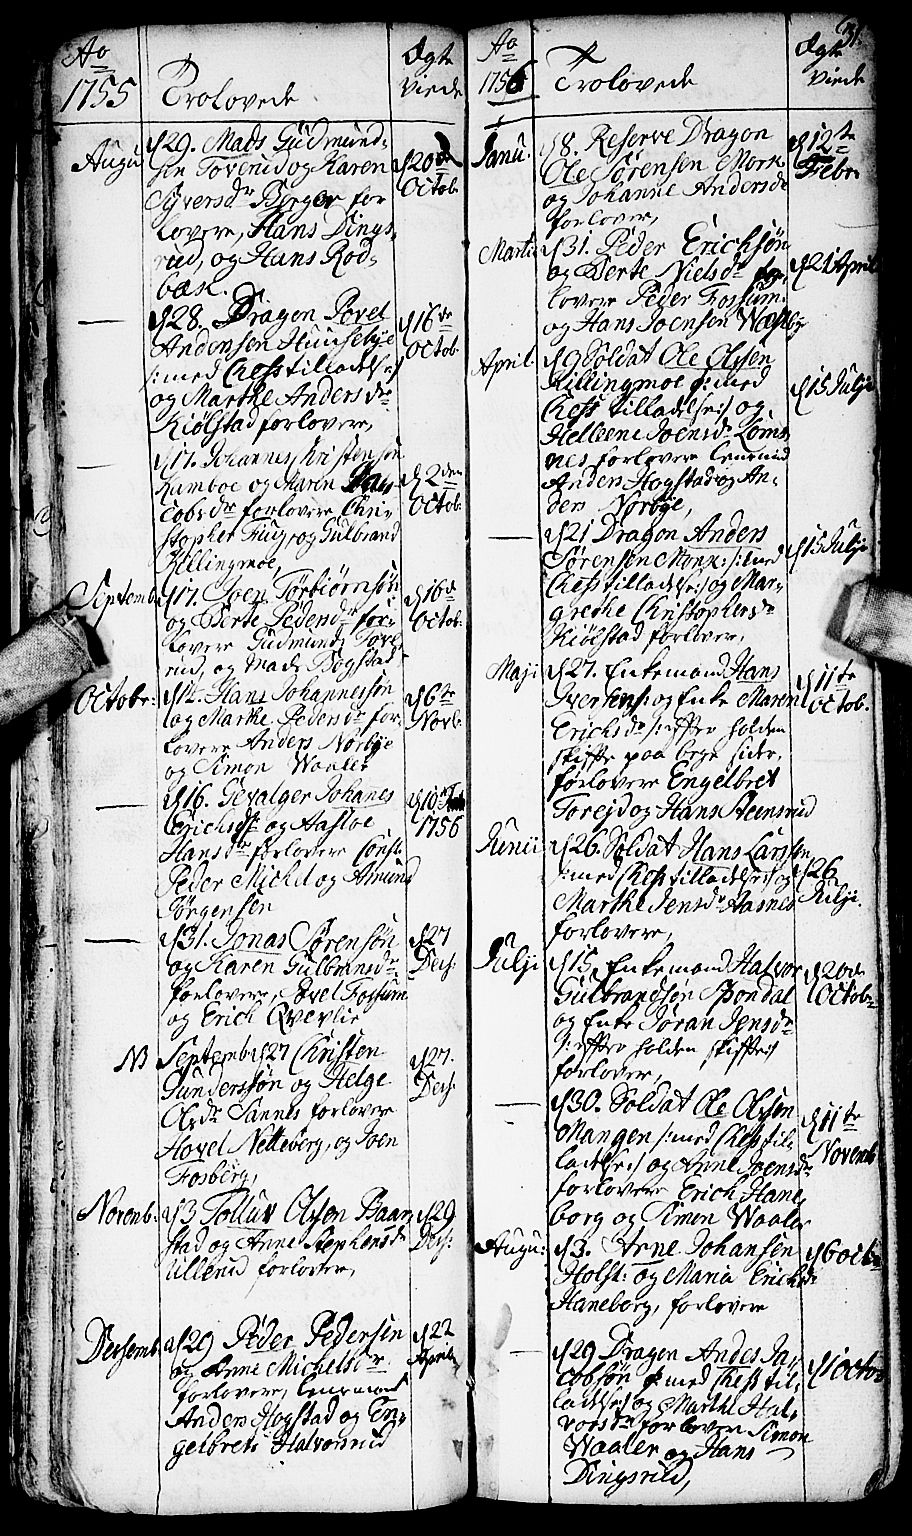 Ao
1755
Trolovede
Ægte
Viede
Augu
d 29. Mads Gudmund-
sen Toverud og Karen
Syversdr Berger for
lovere, Hans Dings-
rud, og Hans Rød-
bæk.
d 20de
Octob.
d 28. Dragon Povel
Andersen Huuseby
/:med Chefs tilladelse:/
og Marthe Andersdr
Kiølstad forlovere,
d 16de
Octob.
d 17. Johannes Christensøn
Kamboe og Marin
cobsdr forlovere Chri-
stopher Fug, og Gulbrand
Killingmoe,
d 2den
Octob.
Septemb.
d 17. Joen Torbiørnsøn
og Berte Pedersdr for-
lovere Gudmund Tove
rud, og Mads Bogstad
d 16de
Octob.
Octobr.
d 12. Hans Johannessøn
og Marthe Pedersdr for-
lovere Anders Nørbye
og Simon Waaler
d 6te
Novb.
d 16. Gevalger Johanes
Erichsøn og Aasloe
Hansdr forlovere
Peder Michel og Amund
Jørgensen
d 10
1756
d 31. Jonas Sørensøn
og Karen Gulbransdr
forlovere, Povel Fossum
og Erich Qvevlie
d 27
Decj.
NB
Septemb. d 27 Christen
Gunderssøn og Helge
Olsdr Sannes forlovere
Hovel Netteberg, og Joen
Fosberg,
d 27.
Decj.
Novenb.
d 3 Tolluv Olssen Baar
stad og Anne Stephensdr
Ullerud forlovere,
d 29
Decj:
Decsemb.
d 29 Peder Pedersen
og Anne Michelsdr
forlovere, Lensmand
Anders Hogstad og En-
gelbret Halvorsrud
d 22
Aprilis
31.
Ao
1756
Trolovede
Ægte
Viede
Janu.
d 8. Reserve Dragon
Ole Sørensen Mork
og Johanne Andersdr
forlovere,
d 12te
Febr.
Martii
d 31. Peder Erichsøn
og Berte Nielsdr for-
lovere Peder Fossum
og Hans Joensen
d 21 April
April.
d 9 Soldat Ole Olssen
Killingmoe /:med
Chefs tilladelse:/ og
Helleene Joensdr Loms
nes forlovere Lensmand
Anders Hogstad og An-
ders Nørbye,
d 15 Julji
d 21 Dragon Anders
Sørensen Monx: /:med
Chefs tilladelse:/ og Mar-
grethe Christophersdr
Kiølstad forlovere,
d 15 Julji
Maji
d 27. Enkemand Hans
Iversens: og Enke Maren
Erichsdr /:efter holden
skifte paa bege sider,
forlovere Engelbret
Torejd og Hans Steensrud
d 11te
Octob.
Junii
d 26. Soldat Hans Larssen
/:med Chefs tilladelse:/ og
Marthe Jensdr Aasnes
forlovere,
d 26
Julji.
Julji
d 15. Enkemand Halvor
Gulbrandsøn Spondal
og Enke Jøran Jensdr
/:efter holden skifte:/
forlovere,
d 20de
Octobr
d 30. Soldat Ole Olssen
Mangen /:med Chefs til-
ladelse:/ og Anne Joensdr
forlovere Erich Hane-
borg og Simen Waaler
d 11te
Novemb
Augu:
d 3. Arne Johansen
Holst: og Maria Erichsdr
Haneborg, forlovere
d 6 octb
d 29 Dragon Andes Ja-
cobsøn /:med Chefs til-
ladelse:/ og Marthe Hal-
vorsdr forlovere Simon
Waaler og Hans
Dingsrud,
d 1 octo